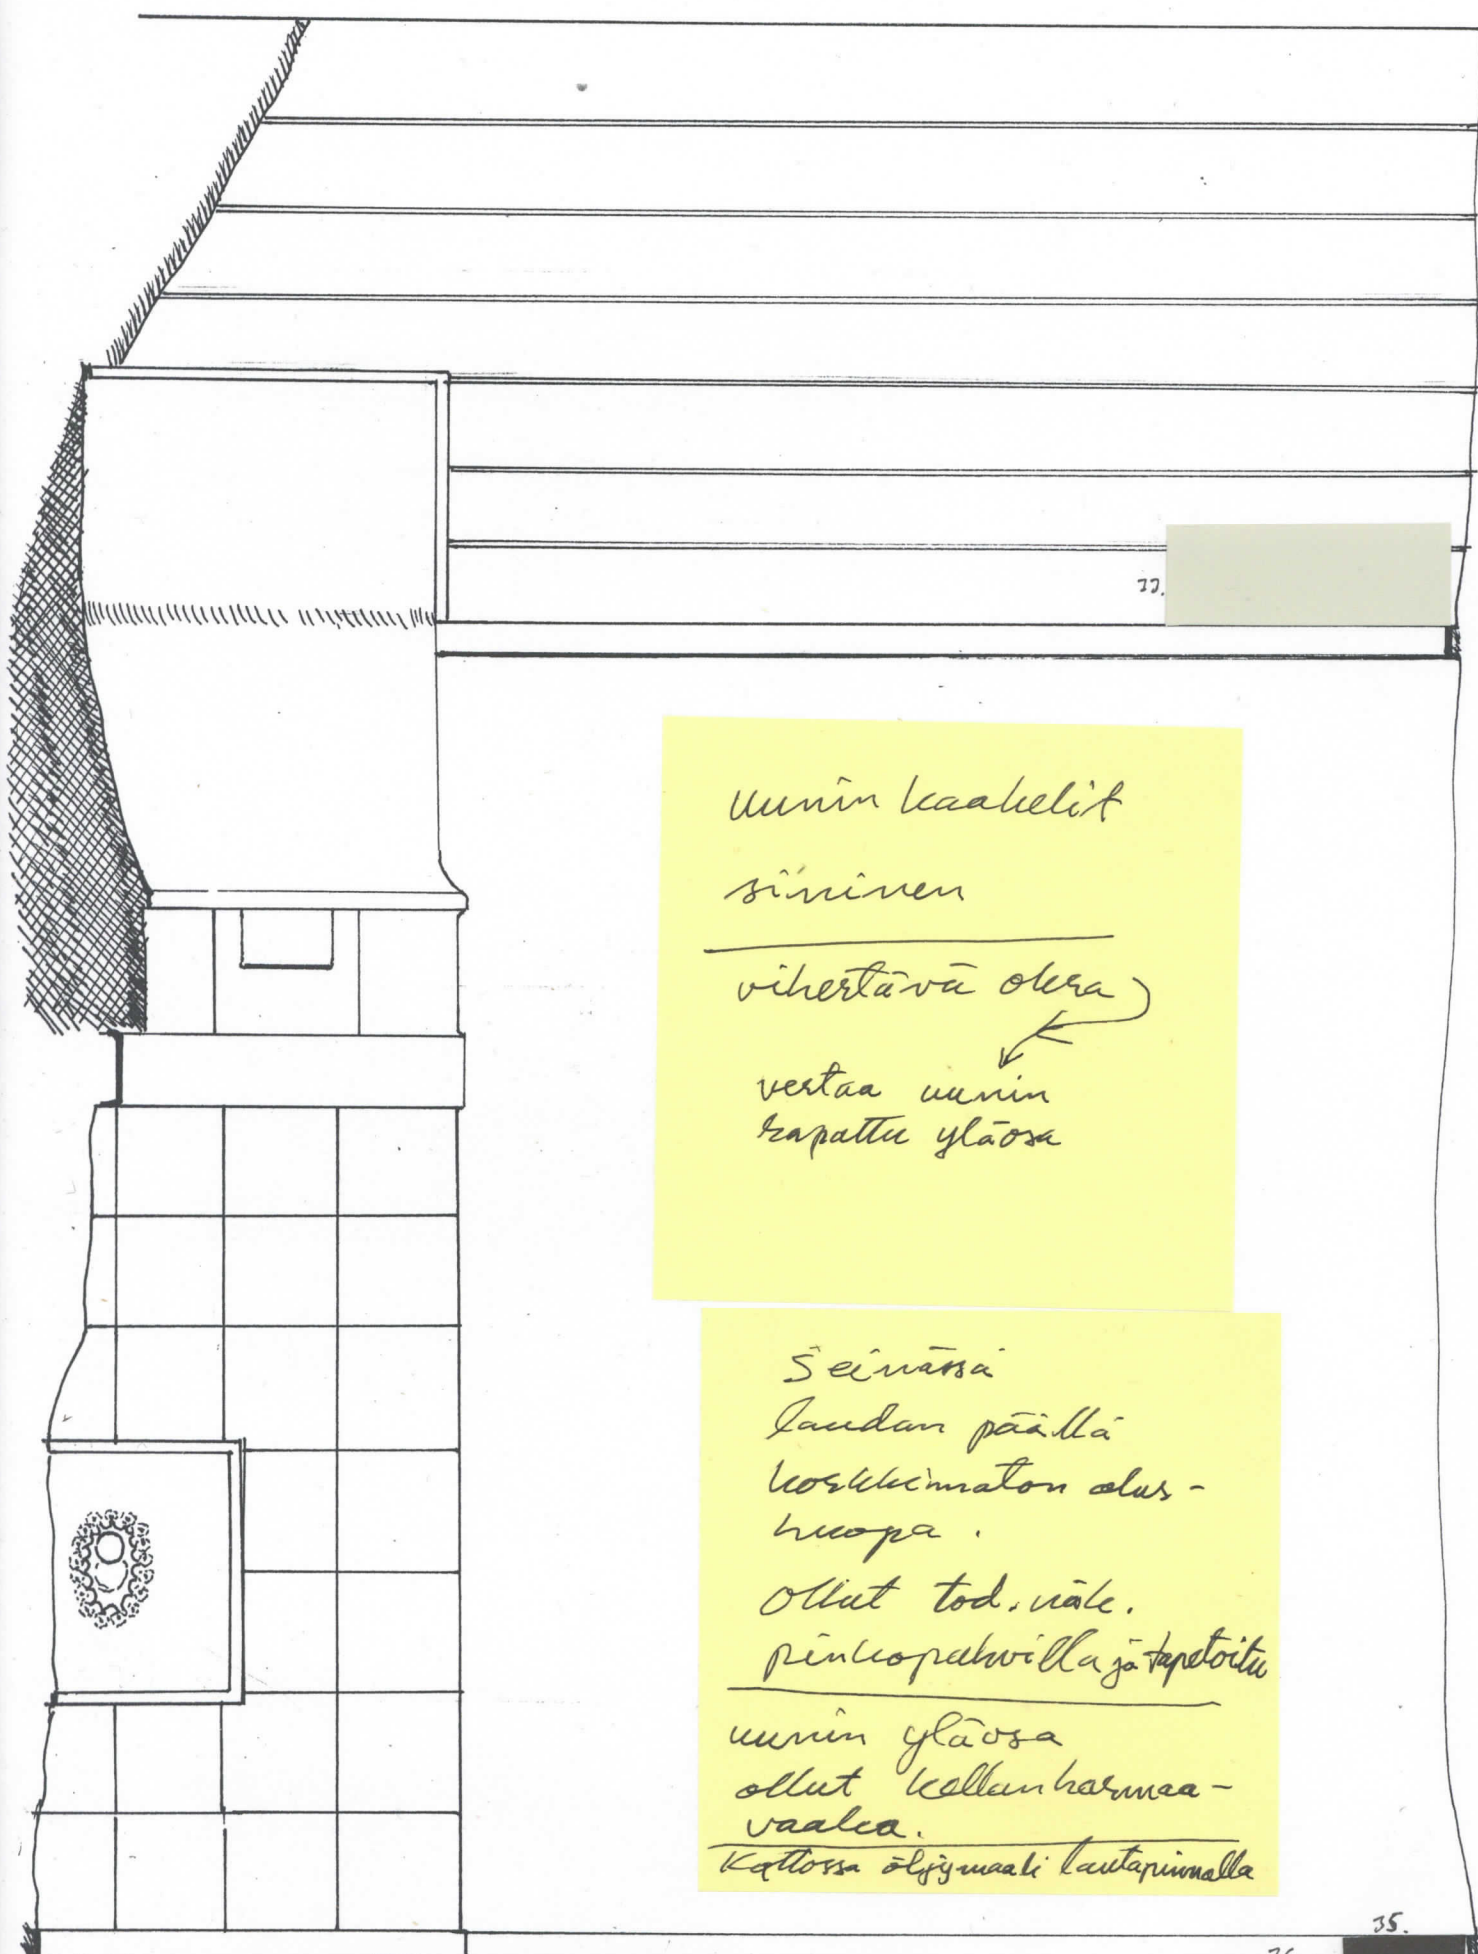 33.
uunin kaakelit
sininen
vihertävä okra
vertaa uunin
rapattu yläosa
Seinässä
laudan päällä
korkkimaton alus-
huopa.
Ollut tod.näk.
pinkopahvilla ja tapetoitu
uunin yläosa
ollut kellanharmaa-
vaalea.
Katossa öljymaali lautapinnalla
35.